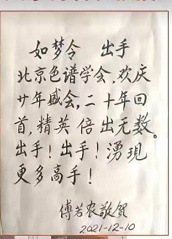 如梦令　出手
北京色谱学会,欢庆
廿年盛会,二十年回
首,精英倍出无数。
出手！出手！湧現
更多高手！
傅若农敬賀
2021-12-10